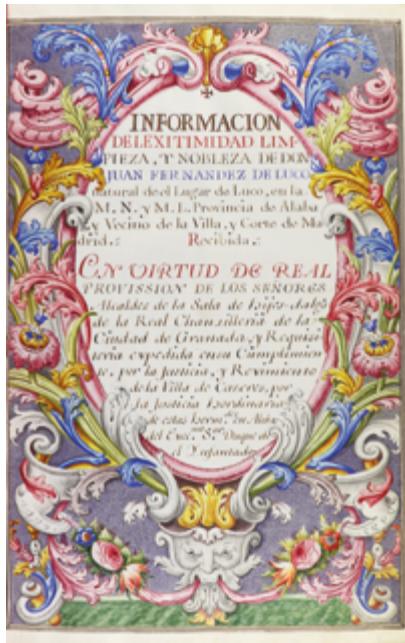 INFORMACION
DE LEXITIMIDAD LIM-
PIEZA, Y NOBLEZA DE DON
JUAN FERNANDEZ DE LUCO
natural de el Lugar de Luco, en la
M. N. y M. L. Provincia de Alaba
y Vecino de la Villa, y Corte de Ma
drid.: Recibida.:
EN VIRTUD DE REAL
PROVISSION DE LOS SEÑORES
Alcaldes de la Sala de hijos-dalgo
de la Real Chanzilleria de la
Ciudad de Granada, y Requisi
toria expedida en su Cumplimien
to, por la Justicia, y
de la Villa de Caceres, por
la Justicia hordinaria
de estas en Alaba
del Duque de
el Ynfantado